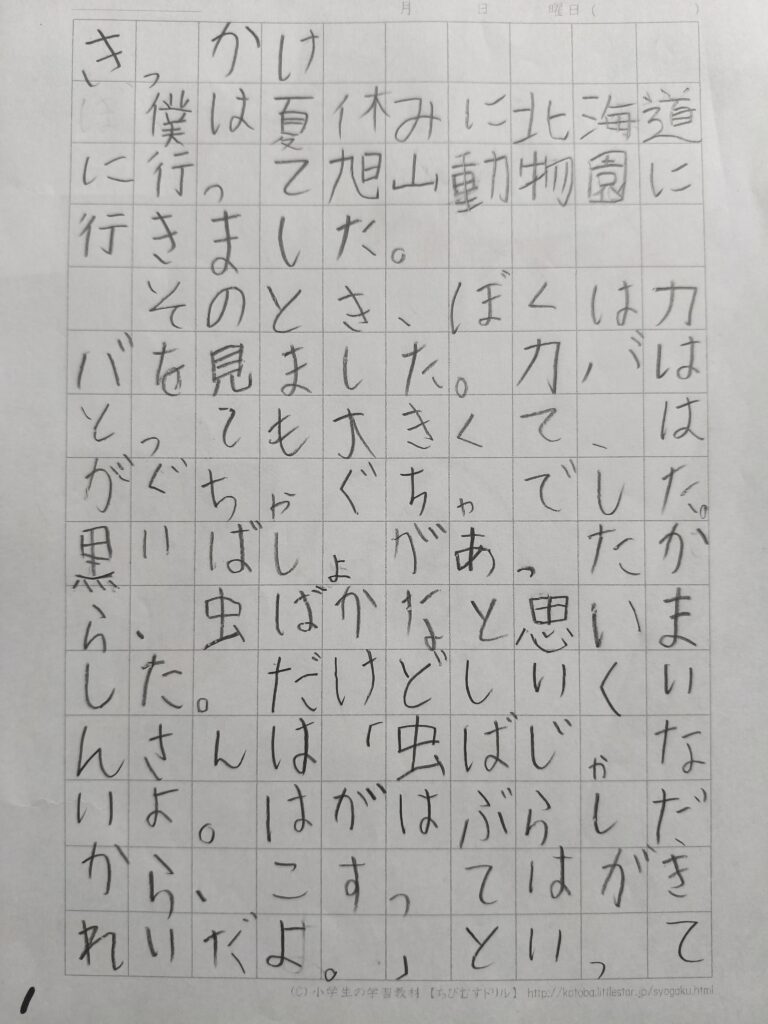 月 日 曜日( )
きっかけ
僕は夏休みに北海道
に行って旭山動物園に
行きました。
そのとき、ぼくはカ
バを見ました。カバは
とっても大きくて、は
がぐちゃぐちゃでした。
黒いばしょがあったか
ら、虫ばかなと思いま
した。だけどしいくい
んさんは「虫ばじゃな
いよ。はがはぶらしだ
から、こすってはがき
れいだよ。」といって
(C) 小学生の学習教材 【ちびむすドリル】 http://kotoba.littlestar.jp/syogaku.html
1